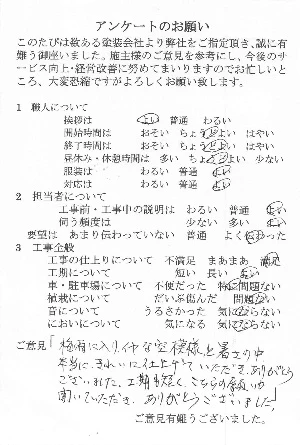 アンケートのお願い
このたびは数ある塗装会社より弊社をご指定頂き、誠に有
難う御座いました。施主様のご意見を参考にし、今後のサ
ービス向上・経営改善に努めてまいりますのでお忙しいと
ころ、大変恐縮ですがよろしくお願い致します。
1 職人について
挨拶は よい 普通 わるい
開始時間は おそい ちょうどよい はやい
終了時間は おそい ちょうどよい はやい
昼休み・休憩時間は 多い ちょうどよい 少ない
服装は わるい 普通 よい
対応は わるい 普通 よい
2 担当者について
工事前・工事中の説明は わるい 普通 よい
伺う頻度は 少ない 多い よい
要望は あまり伝わっていない 普通 よく伝わった
3 工事全般
工事の仕上りについて 不満足 まあまあ 満足
工期について 短い 長い よい
車・駐車場について 不便だった 特に問題ない
植栽について だいぶ傷んだ 問題ない
音について うるさかった 気にならない
においについて 気になる 気にならない
ご意見「梅雨に入りイヤな空模様と暑さの中
本当にきれいに仕上げていただき、ありがとう
ございました。工期も短く、こちらの願いも
聞いていただき、ありがとうございました」
ご意見有難うございました。